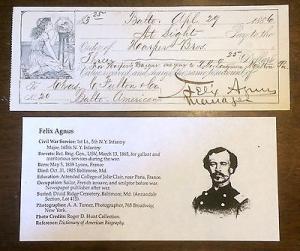 $3 25/100 Balto. Apl. 29 1886
At Sight Pay to the
Order of Harper Bros.
Three 25
Value received and charge to account of
To Chas. C. Fulton & Co. Felix Agnus
Balto. American Manager
Felix Agnus
Civil War Service: 1st Lt., 5th N.Y. Infantry
Major, 165th N.Y. Infantry
Brevets: Bvt. Brig. Gen., USV, March 13, 1865, for gallant and
meritorious services during the war.
Born: May 5, 1839 Lyons, France
Died: Oct. 31, 1925 Baltimore, Md.
Education: Attended College of Jolie Clair, near Paris, France.
Occupation: Sailor, French army, and sculptor before war.
Newspaper publisher after war.
Buried: Druid Ridge Cemetery, Baltimore, Md. (Annandale
Section, Lot 413).
Photographer: A. A. Turner, Photographer, 765 Broadway,
New York.
Photo Credits: Roger D. Hunt Collection.
Reference: Dictionary of American Biography.